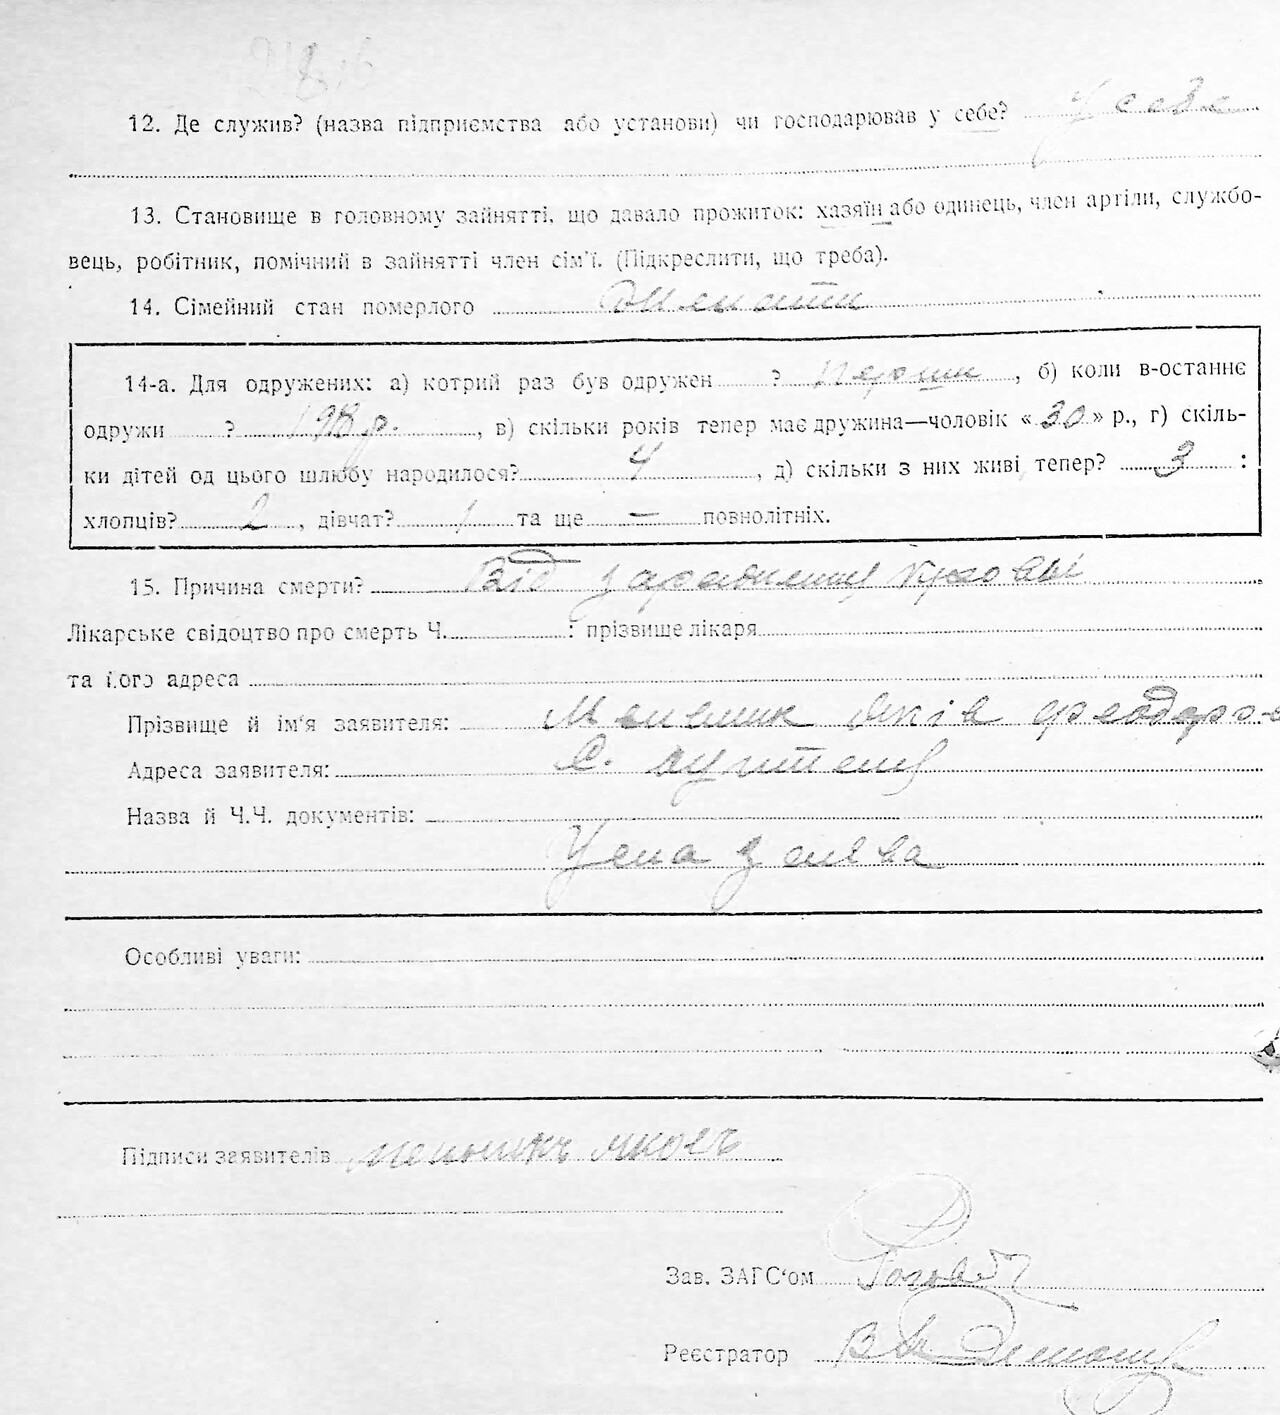 12. Де служив? (назва підприємства або установи) чи господарював у себе? У себе
13. Становище в головному зайнятті, що давало прожиток: хазяїн або одинець, член артіли, службо-
вець, робітник, помічний в зайнятті член сім'ї. (Підкреслити, що треба).
14. Сімейний стан померлого
14-а. Для одружених: а) котрий раз був одружен ? перший, б) коли в-останнє
одружи ? р., в) скільки років тепер має дружина—чоловік «30» р., г) скіль-
ки дітей од цього шлюбу народилося? 4, д) скільки з них живі тепер? 3 :
хлопців? 2, дівчат? 1 та ще — повнолітніх.
15. Причина смерти? Від крові
Лікарське свідоцтво про смерть Ч. : прізвище лікаря
та його адреса
Прізвище й ім'я заявителя: Мельник Яків
Адреса заявителя: С.
Назва й Ч.Ч. документів:
Усна заява
Особливі уваги:
Підписи заявителів
Зав. ЗАГС'ом
Реєстратор